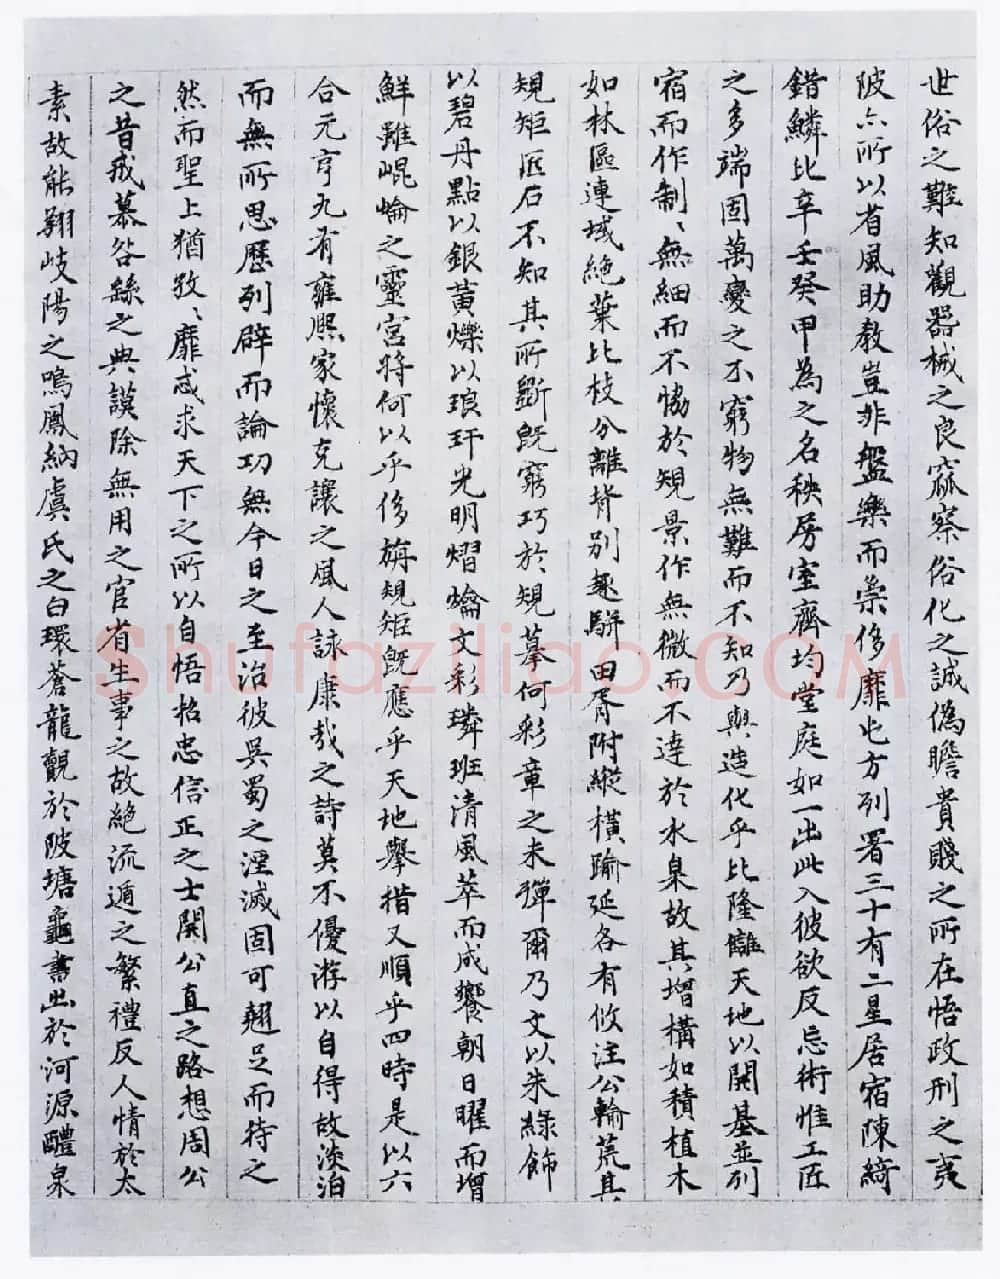 世俗之難知觀器械之良窳察俗化之誠偽瞻貴賤之所在悟政刑之夷
陂亦所以省風助教豈非盤樂而崇侈靡屯方列署三十有二星居宿陳綺
錯鱗比辛壬癸甲為之名秩房室齊均堂庭如一出此入彼欲反忘術惟工匠
之多端固萬變之不窮物無難而不知乃與造化乎比隆讎天地以開基並列
宿而作制、無細而不恊於規景作無微而不違於水臬故其增構如積植木
如林區連域絕葉比枝分離背別趣駢田胥附縱橫踰延各有攸注公輸荒其
規矩匠石不知其所斲既窮巧於規摹何彩章之未彈爾乃文以朱綠飾
以碧丹點以銀黃爍以琅玕光明熠爚文彩璘班清風萃而成響朝日曜而增
鮮雖崐崘之靈宮將何以乎侈旃規矩既應乎天地舉措又順乎四時是以六
合元亨九有雍熙家懷克讓之風人詠康哉之詩莫不優游以自得故淡泊
而無所思歷列辟而論功無今日之至治彼吳蜀之湮滅固可翹足而待之
然而聖上猶孜、靡忒求天下之所以自悟招忠信正之士開公直之路想周公
之昔戒慕咎繇之典謨除無用之官省生事之故絕流遁之繁禮反人情於太
素故能翔岐陽之鳴鳳納虞氏之白環蒼龍覿於陂塘龜書出於河源醴泉
Shufaziliao.COM